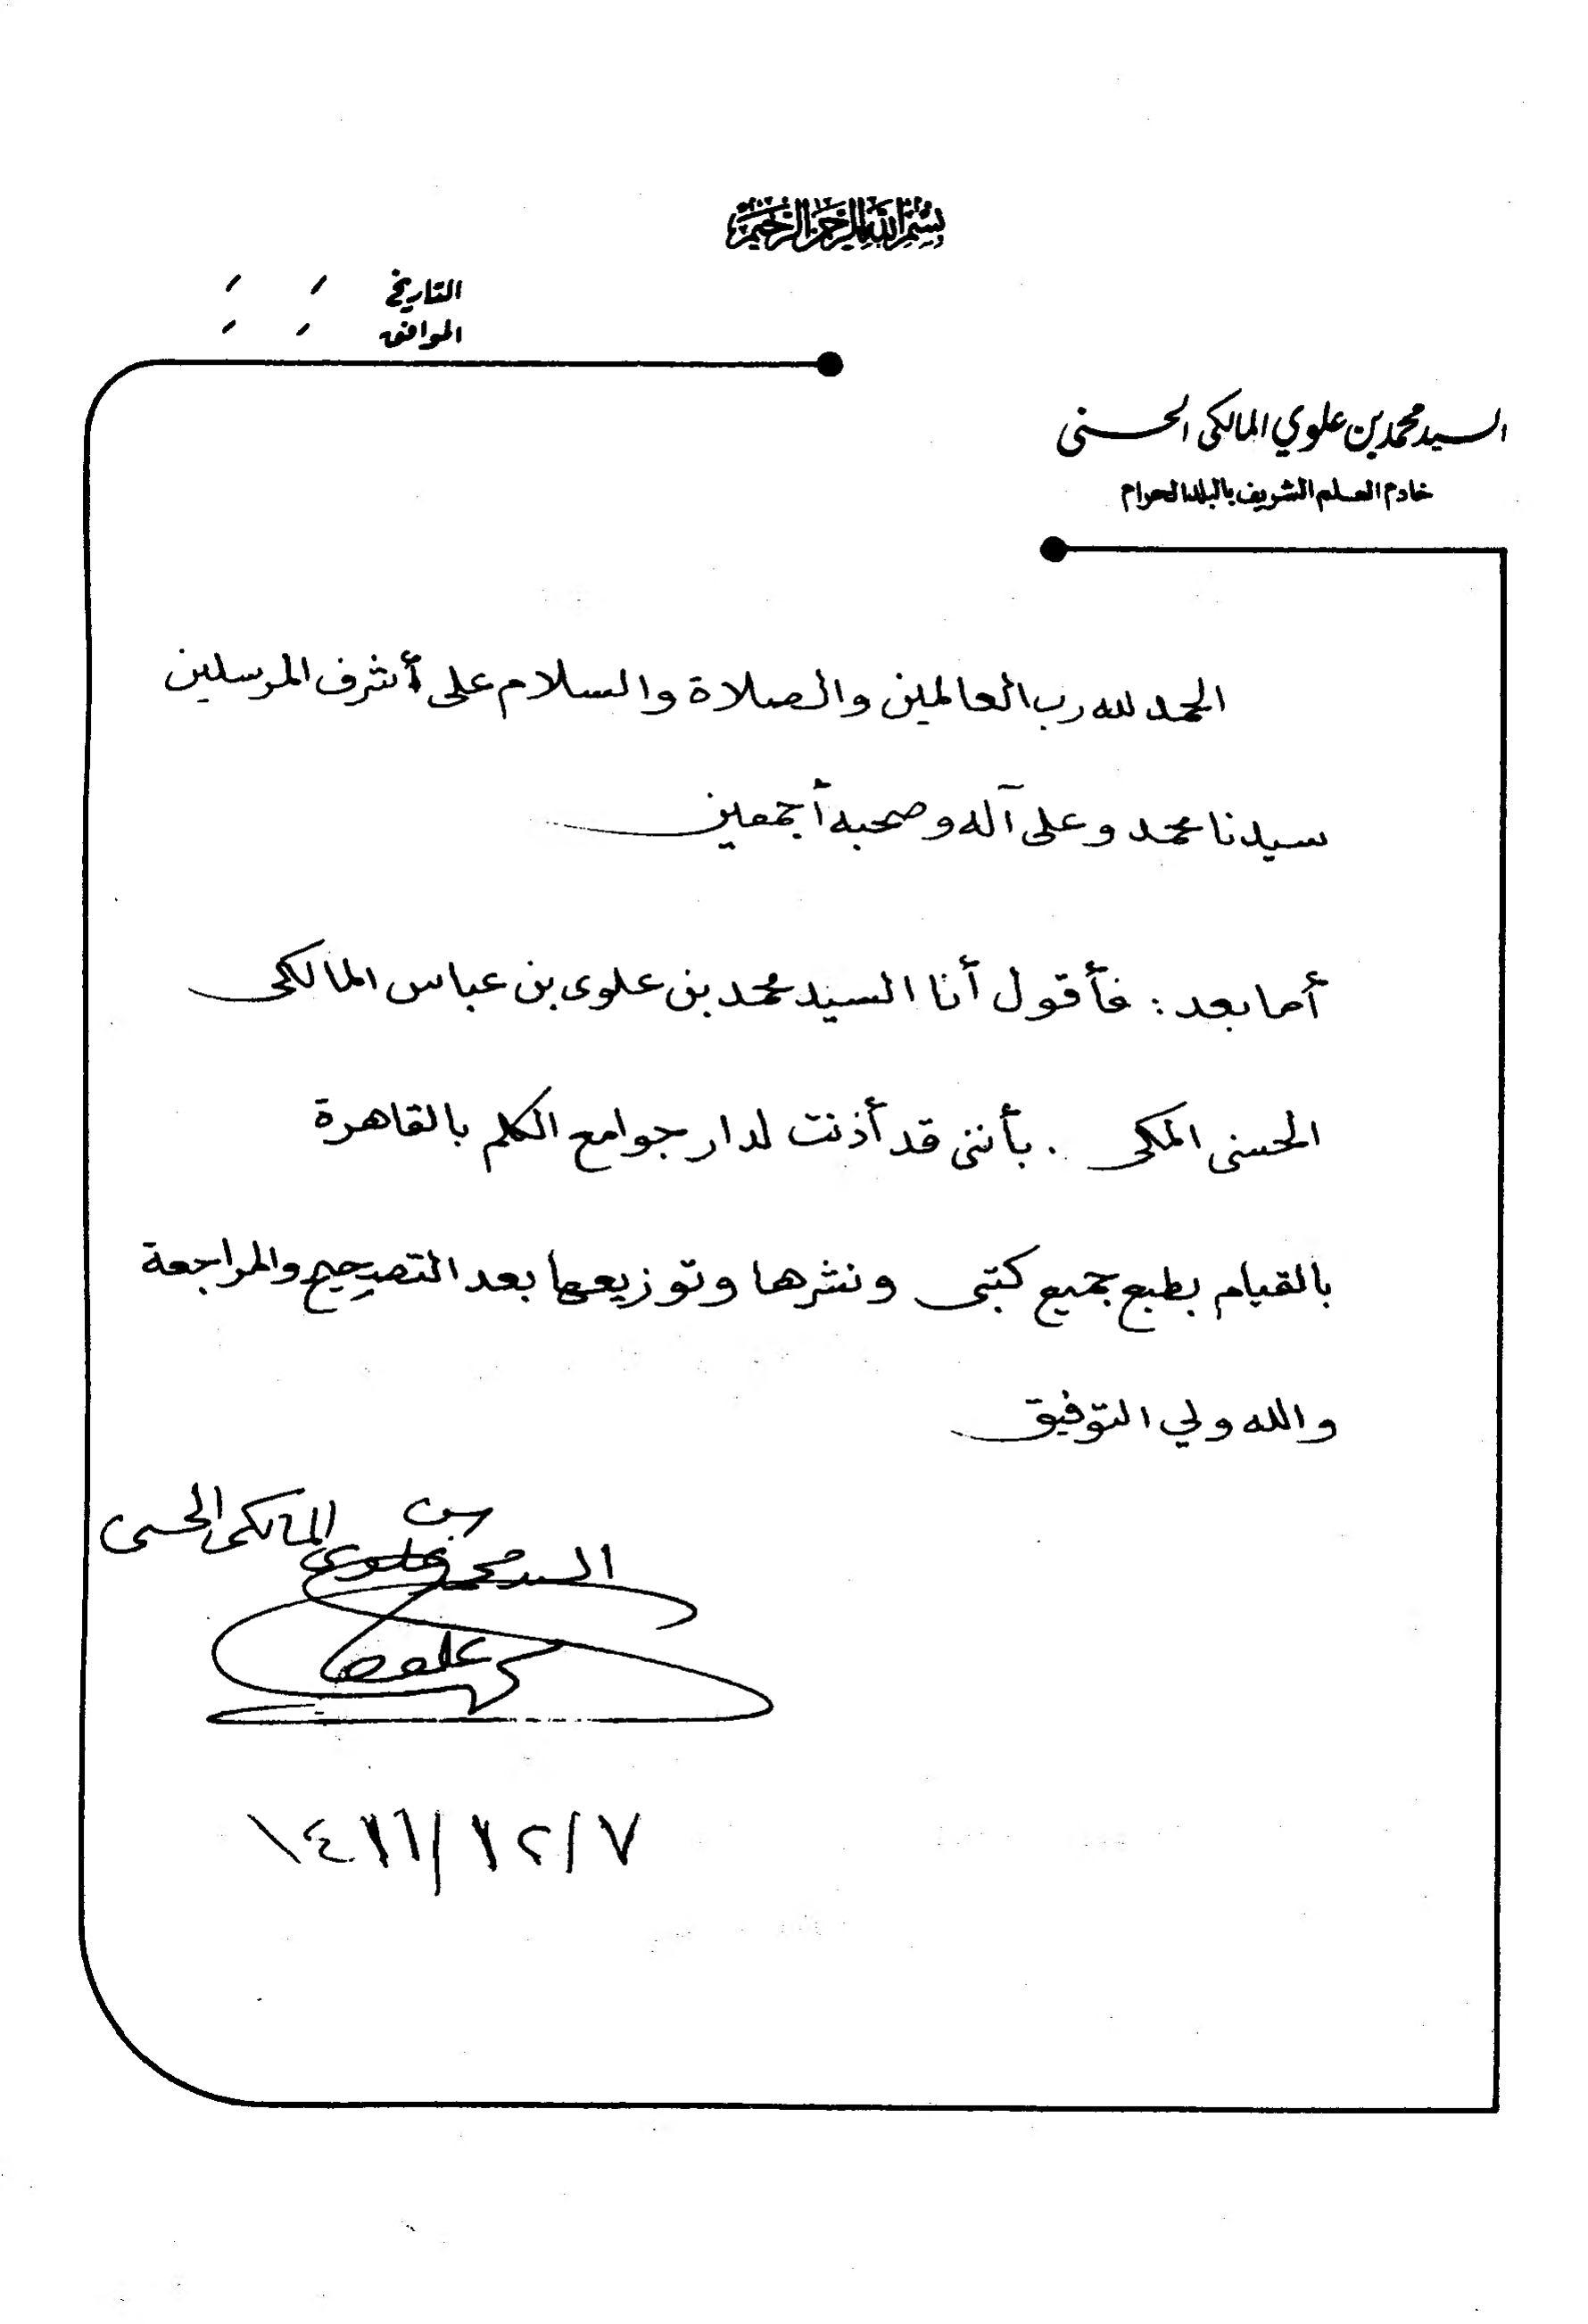 بسم الله الرحمن الرحيم
التاريخ / /
الموافق / /
السيد محمد بن علوي المالكى الحسنى
خادم العلم الشريف بالبلد الحرام
الحمد لله رب العالمين والصلاة والسلام على أشرف المرسلين
سيدنا محمد وعلى آله وصحبه أجمعين
أما بعد : فأقول أنا السيد محمد بن علوى بن عباس المالكى
الحسنى المكى . بأننى قد أذنت لدار جوامع الكلم بالقاهرة
بالقيام بطبع جميع كتبى ونشرها وتوزيعها بعد التصحيح والمراجعة
والله ولي التوفيق
السيد محمد بن علوى المالكى الحسنى
١٤١٦/١٢/٧